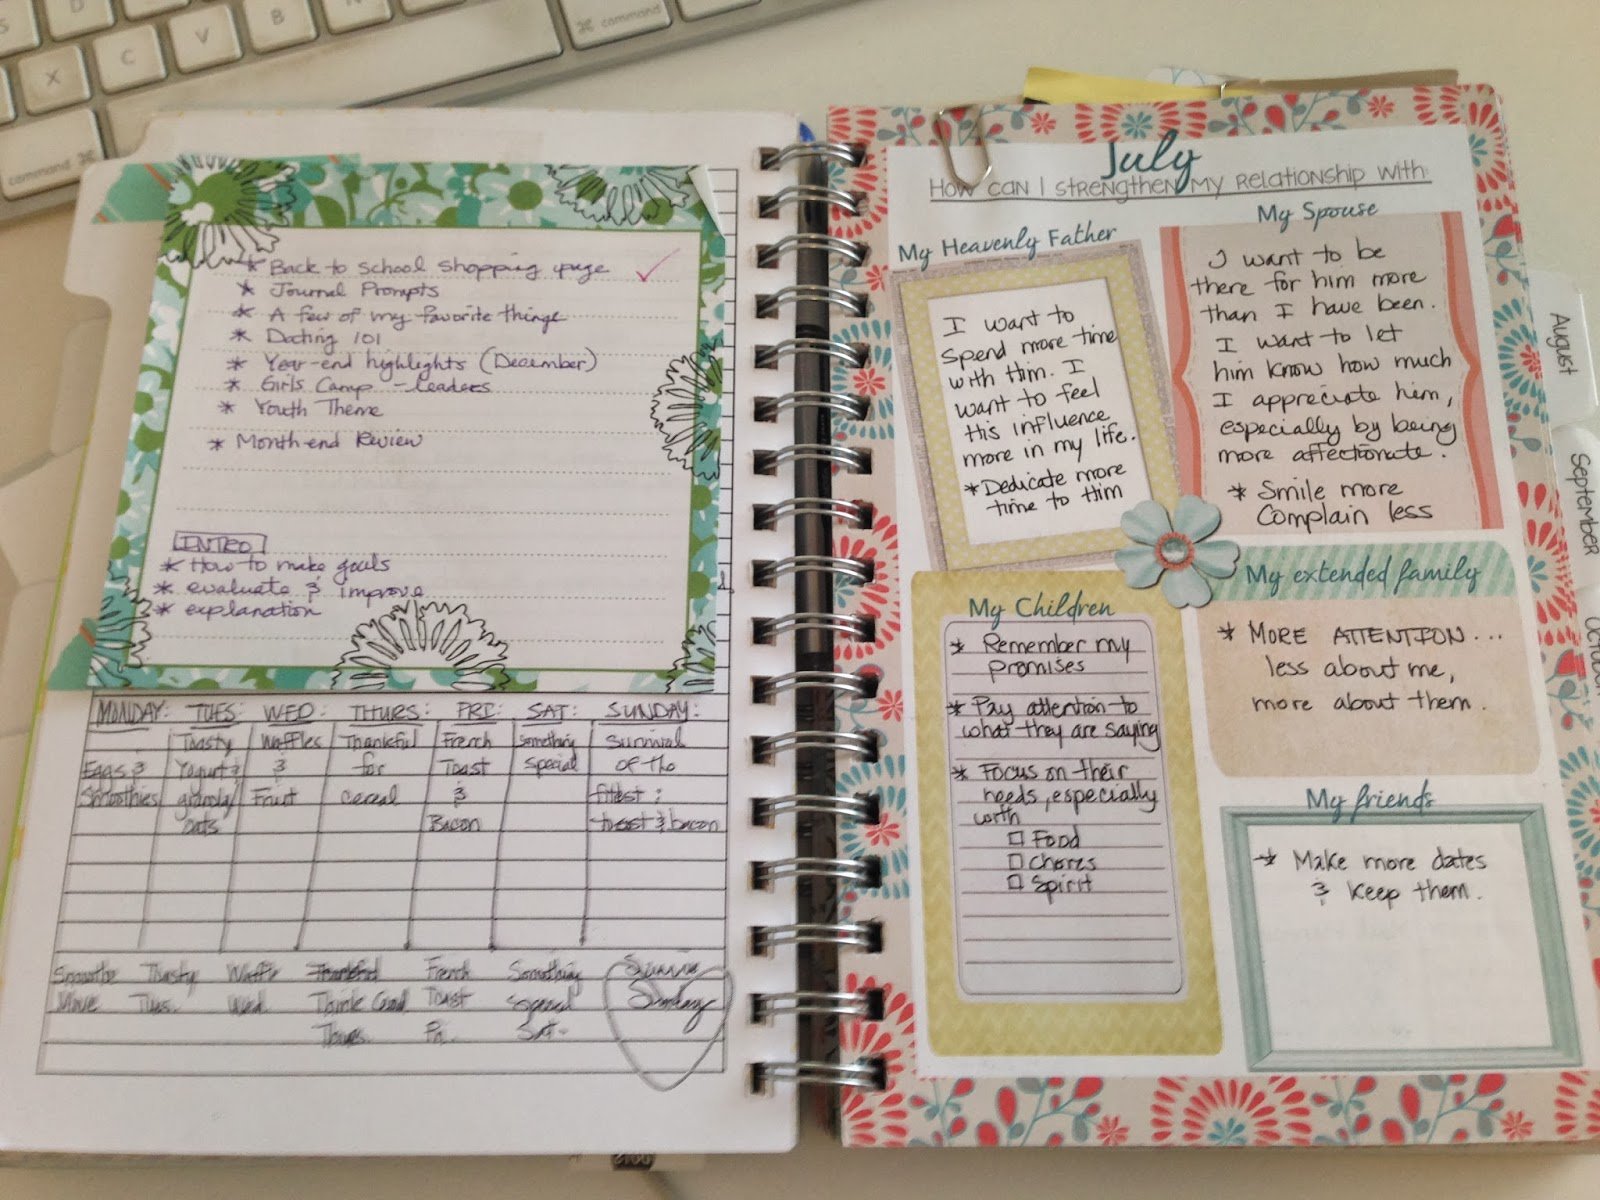 S
D
X
C
V
B
N
command ⌘
⌘ command
* Back to school shopping page ✓
* Journal Prompts
* A few of my favorite things
* Dating 101
* Year-end highlights (December)
* Girls Camp - Leaders
* Youth Theme
* Month-end Review
INTRO
* How to make goals
* evaluate & improve
* explanation
MONDAY: TUES: WED: THURS: FRI: SAT: SUNDAY:
Toasty Waffles Thankful French Something Survival
Eggs & Yogurt & & for Toast Special of the
Smoothies granola/ Fruit cereal & fittest:
oats Bacon toast & bacon
Smoothie Toasty Waffle Thankful French Something
Move Tues. Wed Think Good Toast Special Sunday
Thurs. Fri. Sat.
July
How can I strengthen my relationship with:
My Heavenly Father
I want to
spend more time
with Him. I
want to feel
His influence
more in my life.
* Dedicate more
time to Him
My Spouse
I want to be
there for him more
than I have been.
I want to let
him know how much
I appreciate him,
especially by being
more affectionate.
* Smile more
Complain less
My Children
* Remember my
promises
* Pay attention to
what they are saying
* Focus on their
needs, especially
with
☐ Food
☐ Chores
☐ Spirit
My extended family
* MORE ATTENTION...
less about me,
more about them.
My friends
* Make more dates
& keep them.
August
September
October